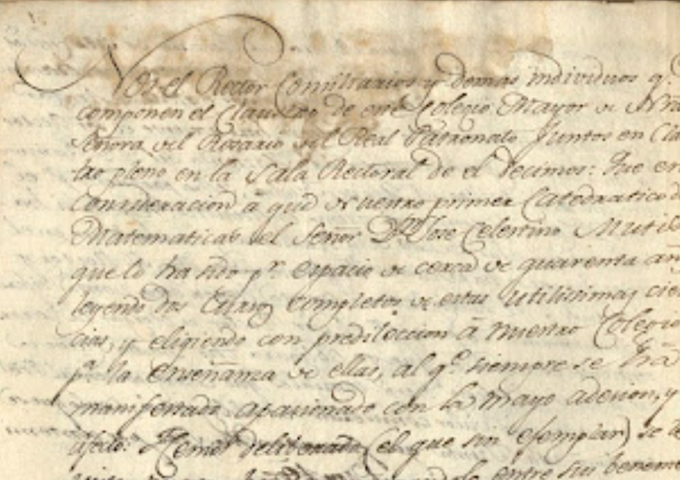 Nos el Rector Conciliarios y demas individuos q.
componen el Claustro de este Colegio Mayor de Nra
Señora del Rosario del Real Patronato Juntos en Clau
tro pleno en la Sala Rectoral de el decimos: Que en
consideracion à que nuestro primer Catedratico de
Matematicas el Señor D.r Jose Celestino Mutis
que lo ha sido p.r espacio de cerca de quarenta añ
leyendo dos Cursos completos de estas utilisimas cien
cias, y eligiendo con predileccion à nuestro Colegio
p.a la enseñanza de ellas, al q.e siempre se ha
manifestado apasionado con la mayo adesion, y
afecto. Hemos deliberado (el que sin ejemplar) se
entre sus beneme